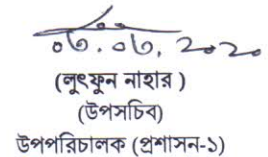 ০৩.০৩.২০২০
(লুৎফুন নাহার)
(উপসচিব)
উপপরিচালক (প্রশাসন-১)